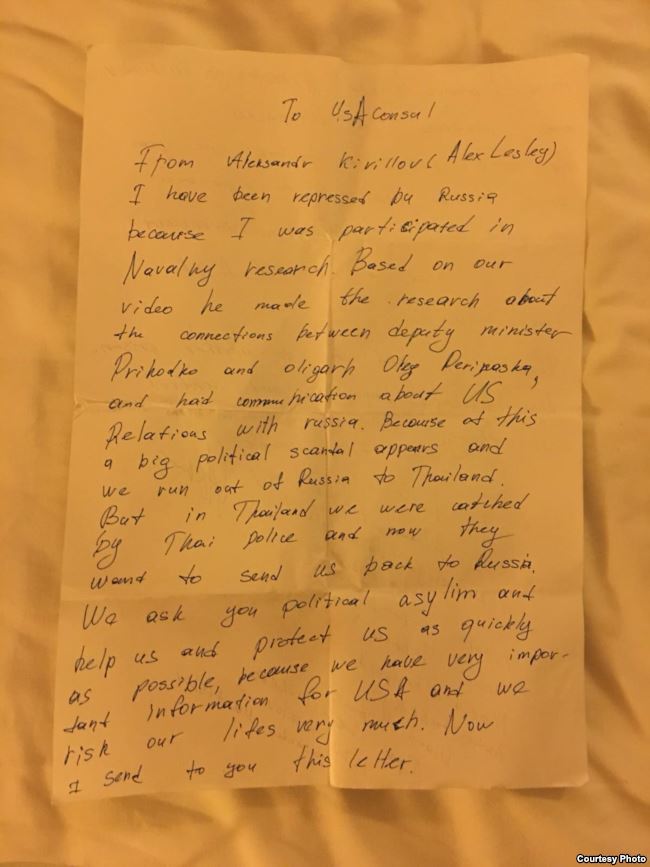 To USA Consul
From Aleksandr Kirillov (Alex Lesley)
I have been repressed by Russia
becouse I was participated in
Navalny research. Based on our
video he made the research about
the connections between deputy minister
Prihodko and oligarh Oleg Deripaska,
and had communication about US
Relations with russia. Becouse of this
a big political scandal appears and
we run out of Russia to Thailand.
But in Thailand we were catched
by Thai police and now they
want to send us back to Russia.
We ask you political asylim and
help us and protect us as quickly
as possible, because we have very impor-
tant information for USA and we
risk our lifes very much. Now
I send to you this letter.
Courtesy Photo